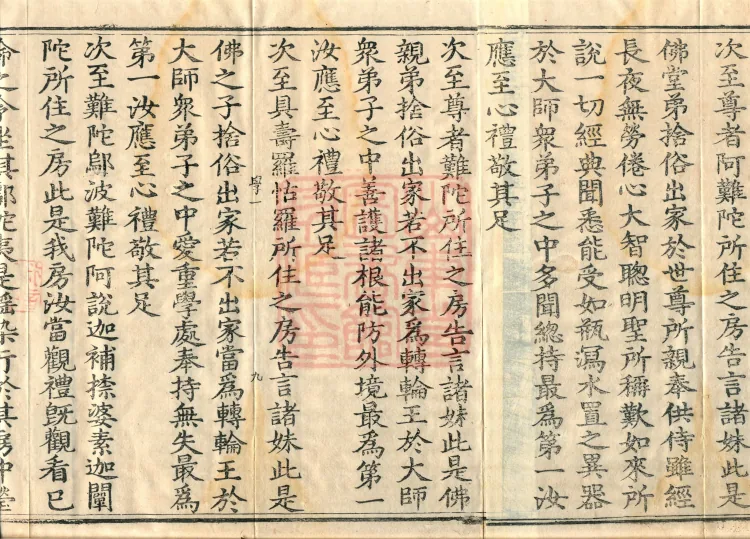 次至尊者阿難陀所住之房告言諸妹此是
佛堂弟捨俗出家於世尊所親奉供侍雖經
長夜無勞倦心大智聰明聖所稱歎如來所
說一切經典聞悉能受如瓶瀉水置之異器
於大師衆弟子之中多聞總持最爲第一汝
應至心禮敬其足
次至尊者難陀所住之房告言諸妹此是佛
親弟捨俗出家若不出家爲轉輪王於大師
衆弟子之中善護諸根能防外境最爲第一
汝應至心禮敬其足
次至具壽羅怙羅所住之房告言諸妹此是
學一 九
佛之子捨俗出家若不出家當爲轉輪王於
大師衆弟子之中愛重學處奉持無失最爲
第一汝應至心禮敬其足
次至難陀鄔波難陀阿說迦補捺婆素迦闡
陀所住之房此是我房汝當觀禮旣觀看已
命之令坐其鄔陀夷是婬染行於其房中瑩